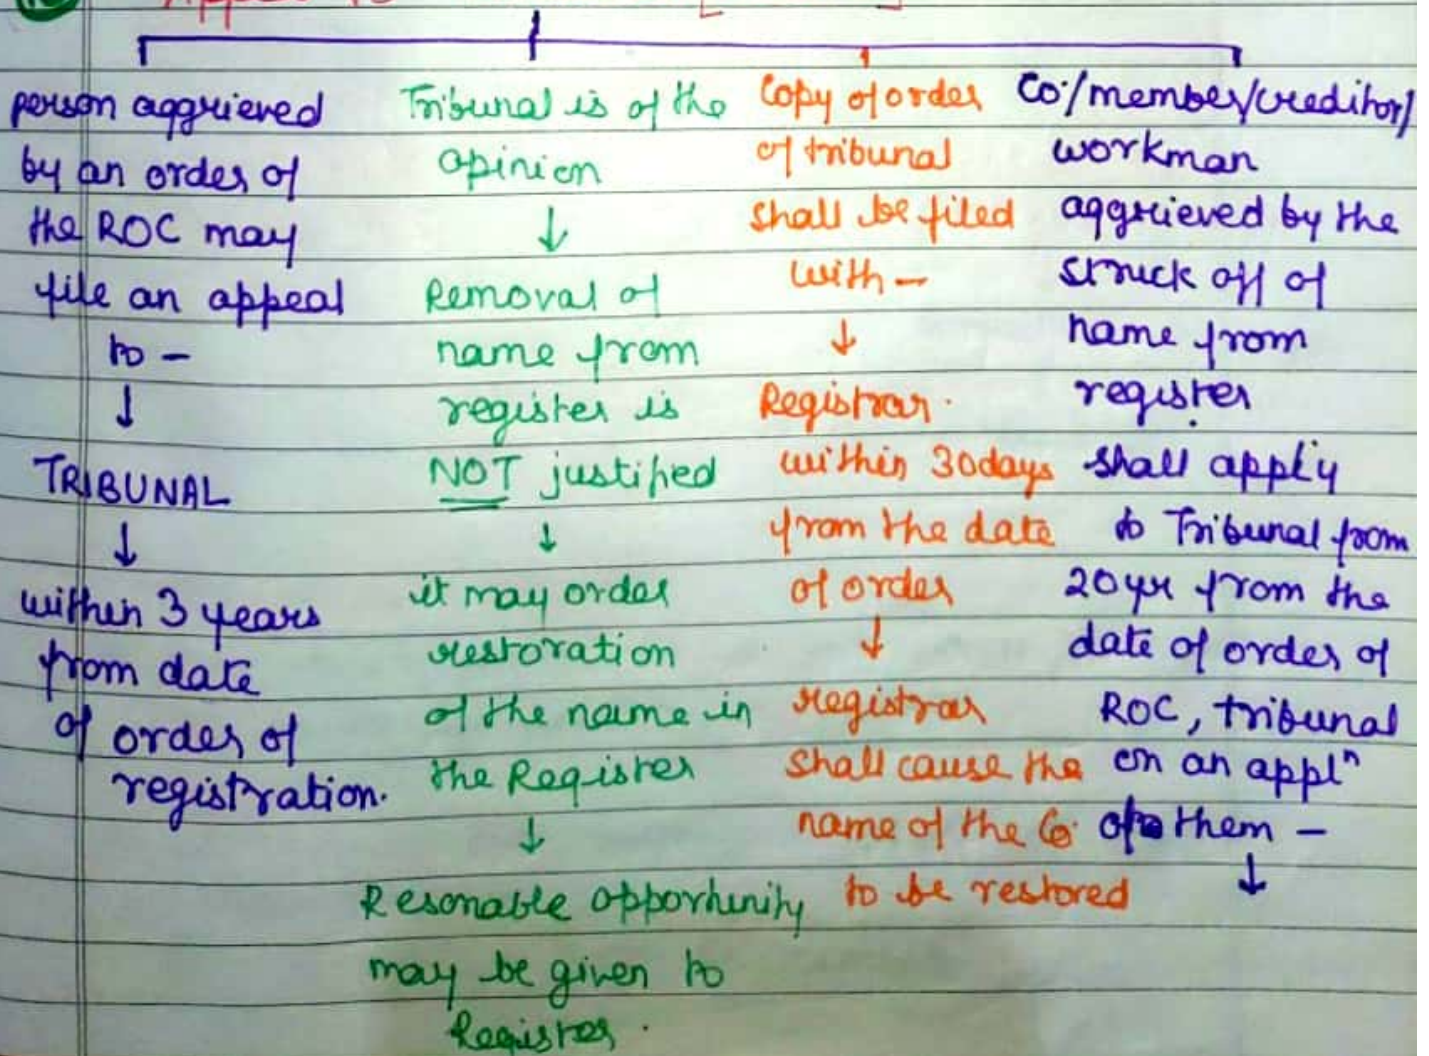 Appeal to
person aggrieved
by an order of
the ROC may
file an appeal
to -
↓
TRIBUNAL
↓
within 3 years
from date
of order of
registration.
Tribunal is of the
opinion
↓
Removal of
name from
register is
NOT justified
↓
it may order
restoration
of the name in
the Register
↓
Resonable opportunity
may be given to
Register.
Copy of order
of tribunal
shall be filed
with -
↓
Registrar.
within 30days
from the date
of order
↓
registrar
shall cause the
name of the Co.
to be restored
Co./member/creditor/
workman
aggrieved by the
struck off of
name from
register
shall apply
to Tribunal from
20yr from the
date of order of
ROC, tribunal
on an applⁿ
of them -
↓